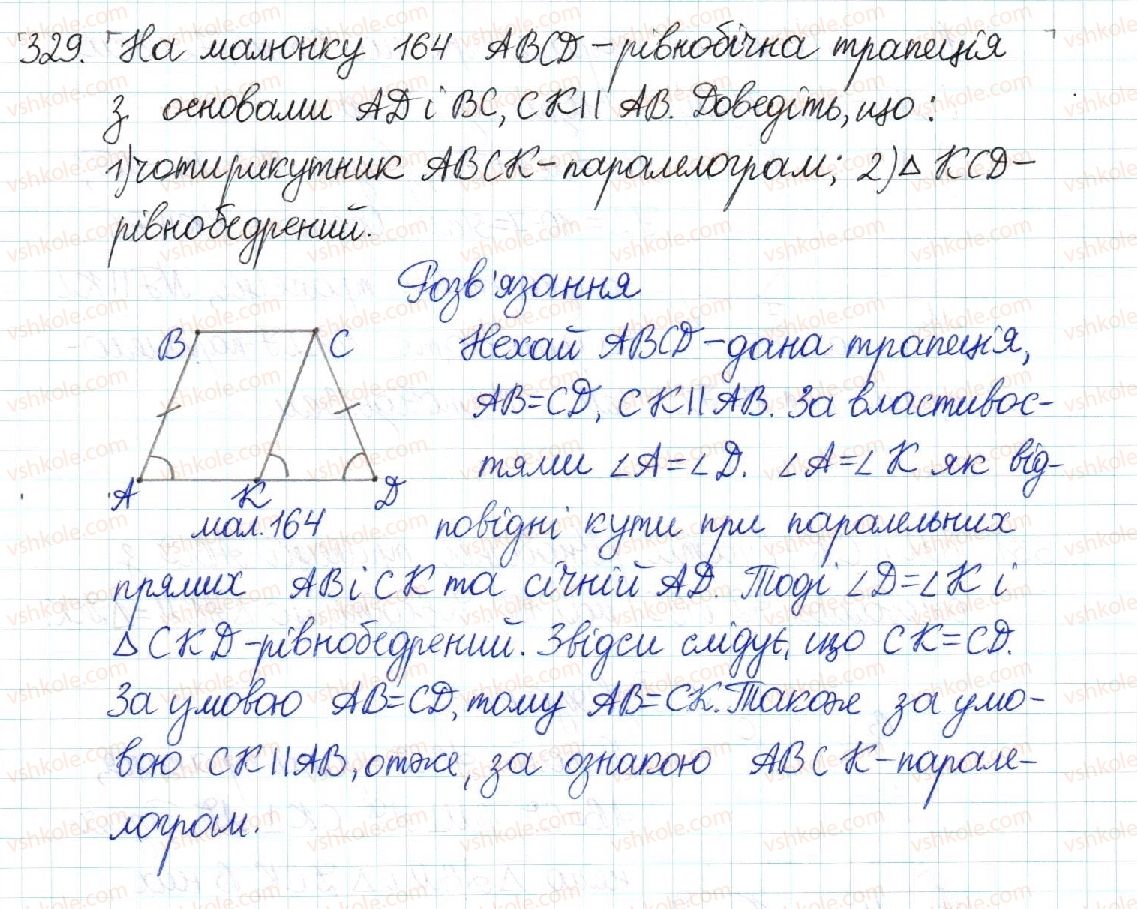 329. На малюнку 164 ABCD - рівнобічна трапеція
з основами AD і BC, CK || AB. Доведіть, що:
1) чотирикутник ABCK - паралелограм; 2) △ KCD -
рівнобедрений.
Розв'язання
B C
Нехай ABCD - дана трапеція,
AB = CD, CK || AB. За властивос-
тями ∠A = ∠D. ∠A = ∠K як від-
A K D
мал. 164
повідні кути при паралельних
прямих AB і CK та січній AD. Тоді ∠D = ∠K і
△ CKD - рівнобедрений. Звідси слідує, що CK = CD.
За умовою AB = CD, тому AB = CK. Також за умо-
вою CK || AB, отже, за ознакою ABCK - парале-
лограм.
vshkole.com